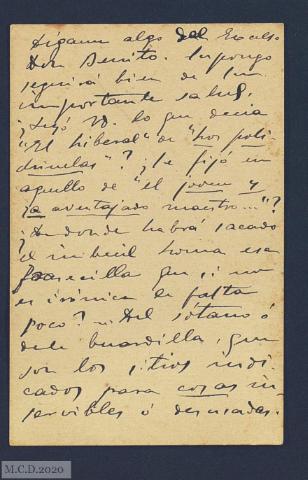 Díganme algo del Excelso
Don Benito. Supongo
seguirá bien de su
importante salud.
¿Leyó V. lo que decía
"El Liberal" de "Los poli-
chinelas"? ¿Se fijó en
aquello de "el joven y
ya aventajado maestro..."?
¿De donde habrá sacado
el imbécil homa esa
frasecilla que si no
es irónica le falta
poco? Del sótano ó
de la buardilla, que
son los sitios indi-
cados para cosas in-
servibles ó desusadas.
M.C.D.2020